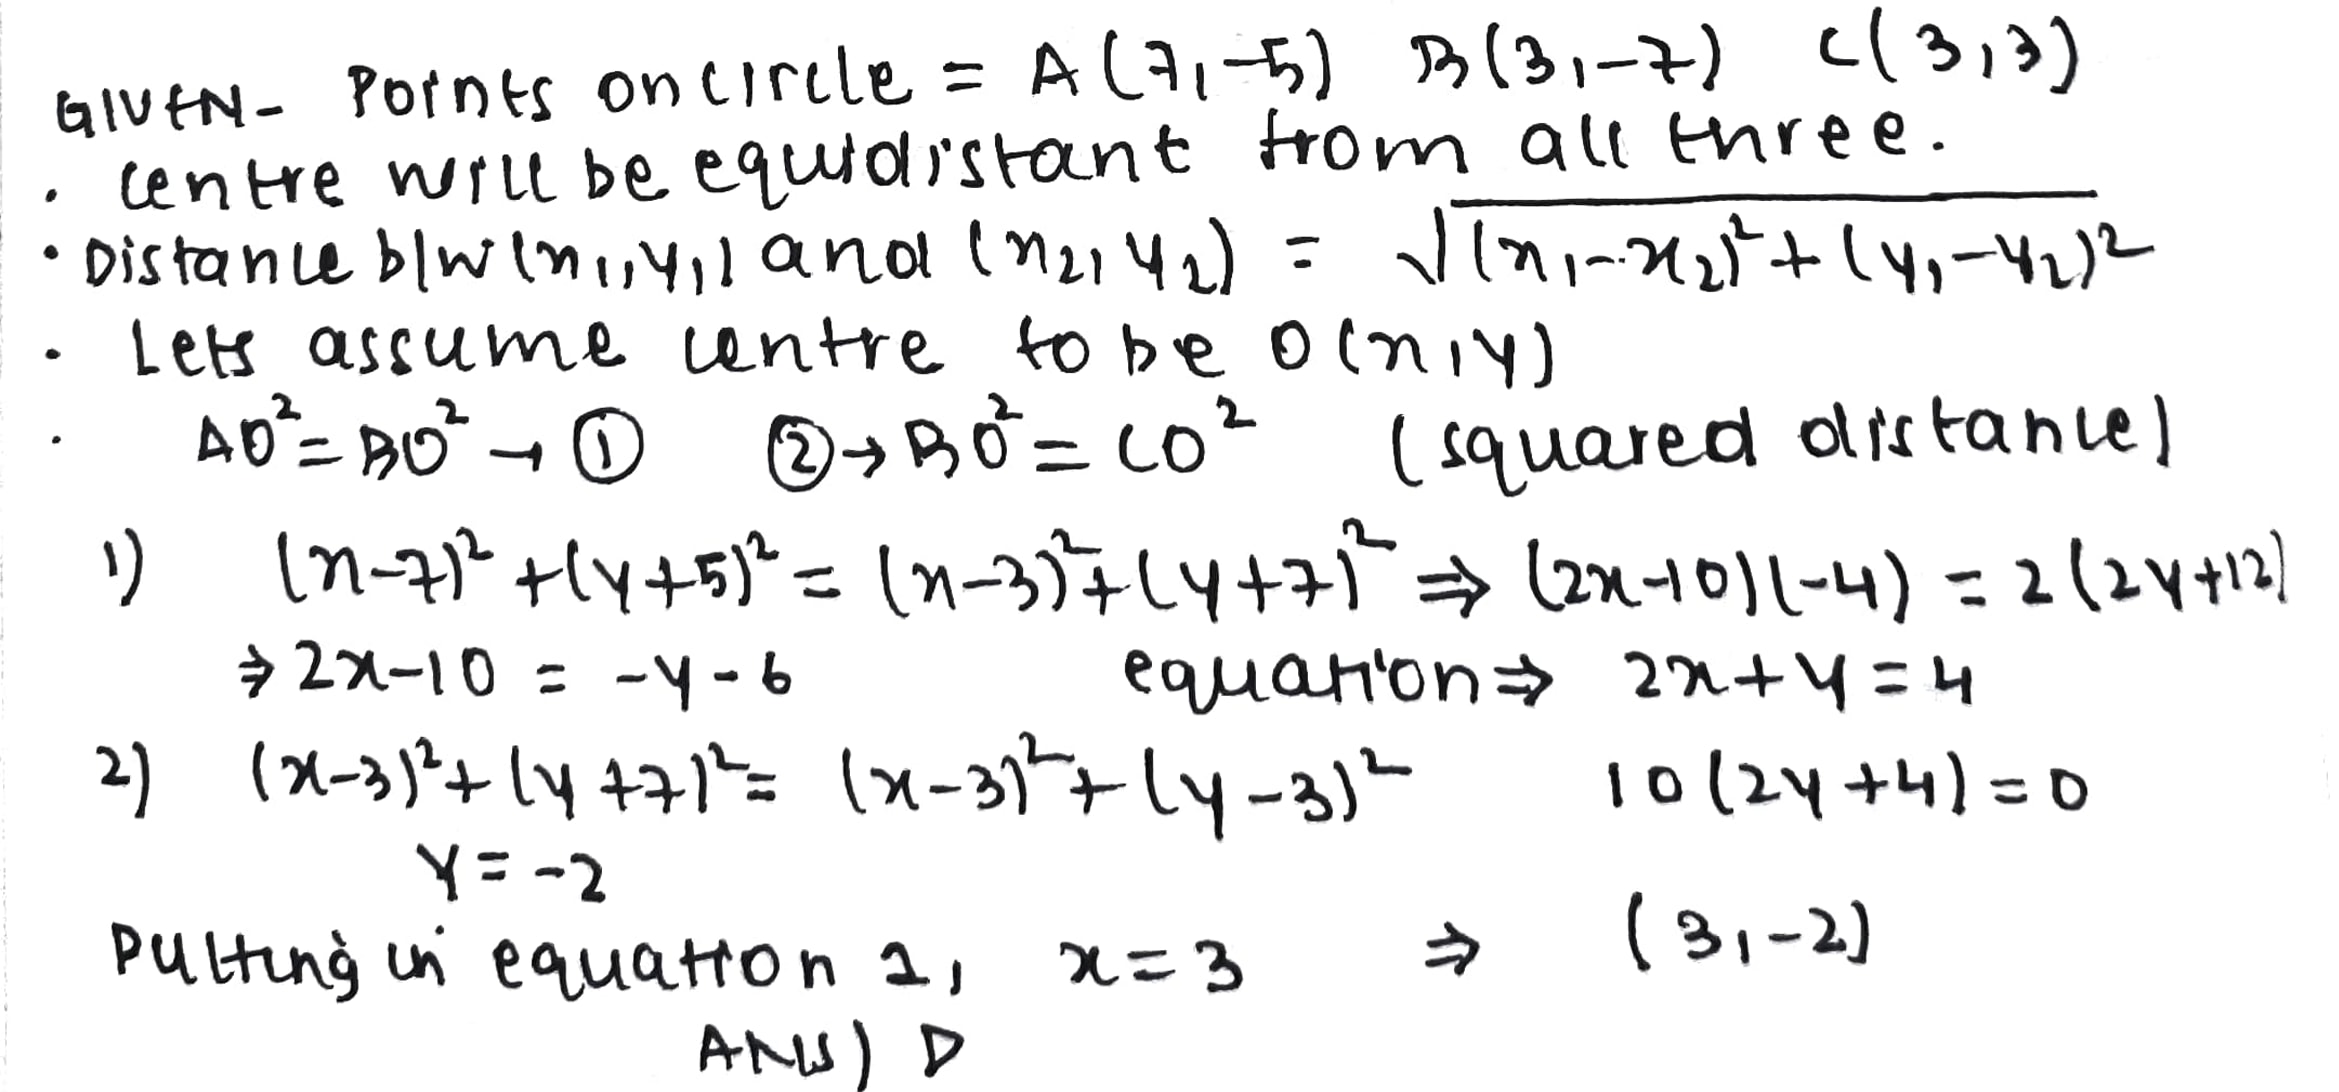 GIVEN- Points on circle = A(7,-5) B(3,-7) C(3,3)
. centre will be equidistant from all three.
• Distance b/w (x₁,y₁) and (x₂,y₂) = √(x₁-x₂)²+(y₁-y₂)²
• Lets assume centre to be O(x,y)
. AO²=BO² → ① ②→ BO²=CO² (squared distance)
1) (x-7)²+(y+5)² = (x-3)²+(y+7)² ⇒ (2x-10)(-4) = 2(2y+12)
⇒ 2x-10 = -y-6 equation ⇒ 2x+y=4
2) (x-3)²+(y+7)²= (x-3)²+(y-3)² 10(2y+4)=0
Y=-2
Putting in equation 1, x=3 ⇒ (3,-2)
ANS) D